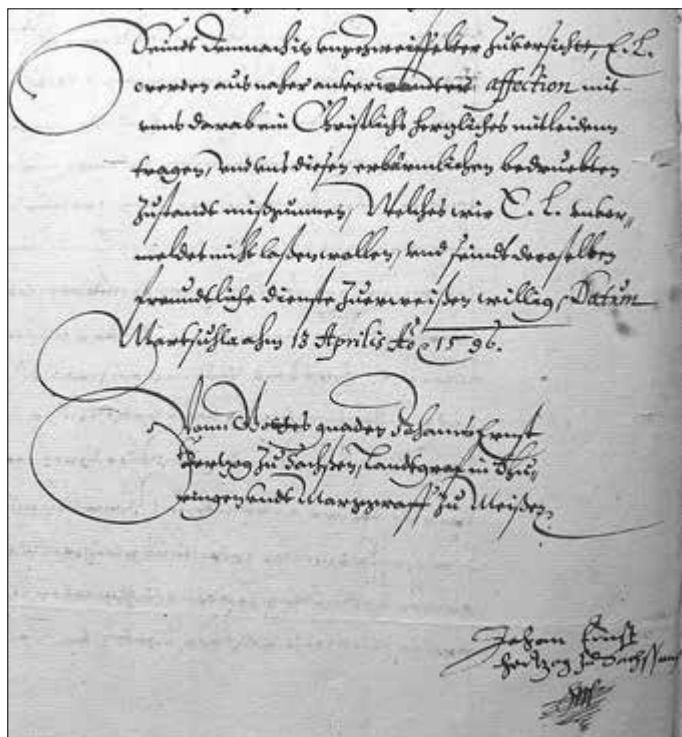 Seindt demnach in ungezweiffelter Zuversicht, E. L.
werden aus naher anverwandtnis affection mit
uns darab ein Christlichs hertzliches mitleidenn
tragen, und uns diesen erbärmlichen bedruebten
Zustands mißgunnen, Welches wir E. L. unver-
meldet nicht laßen wollen, und seindt deroselben
freundtliche dienste Zuerweißen willig, Datum
Marksuhla ahm 13 Aprilis Ao 1596.
Vonn Gottes gnaden Johanns Ernst
Hertzog Zu Sachßen, Landtgraf in Thu-
ringen undt Marggraff Zu Meißen
Johan Ernst
hertzog zu Sachssenn